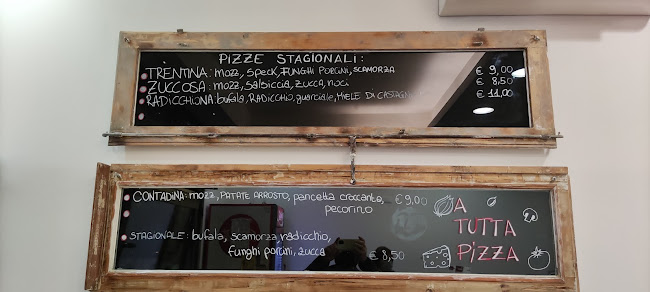 PIZZE STAGIONALI:
TRENTINA: mozz, speck, FUNGHI PORCINI, SCAMORZA € 9,00
ZUCCOSA: mozz, salsiccia, zucca, noci € 8,50
RADICCHIONA: bufala, RADICCHIO, guanciale, MIELE DI CASTAGNO € 11,00
CONTADINA: mozz, PATATE ARROSTO, pancetta croccante, € 9,00
pecorino
STAGIONALE: bufala, scamorza radicchio,
funghi porcini, zucca € 8,50
A
TUTTA
PIZZA